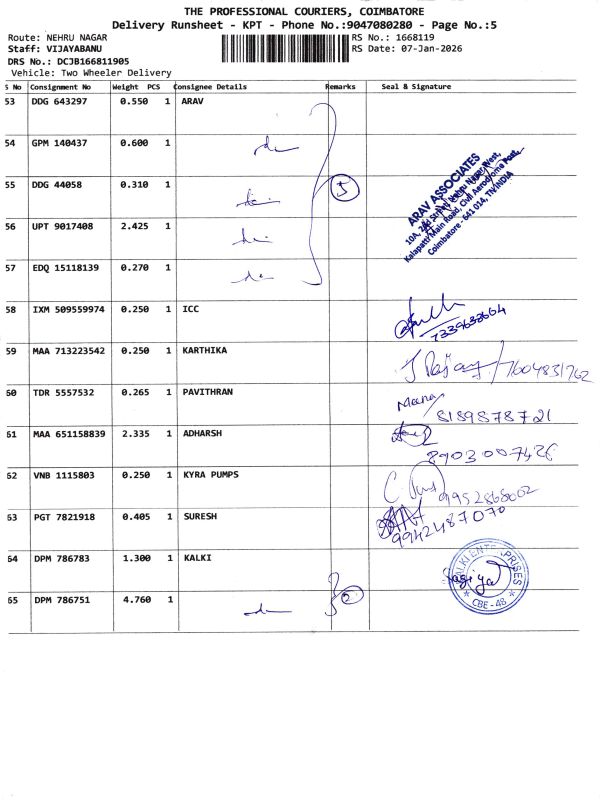 THE PROFESSIONAL COURIERS, COIMBATORE
Delivery Runsheet - KPT - Phone No.:9047080280 - Page No.:5
Route: NEHRU NAGAR
RS No.: 1668119
Staff: VIJAYABANU
RS Date: 07-Jan-2026
DRS No.: DCJB166811905
Vehicle: Two Wheeler Delivery
S No Consignment No Weight PCS Consignee Details Remarks Seal & Signature
53 DDG 643297 0.550 1 ARAV
54 GPM 140437 0.600 1
55 DDG 44058 0.310 1 5
ARAV ASSOCIATES
10A, 2nd Street, Nehru Nagar West,
Kalapatti Main Road, Civil Aerodrome Post,
Coimbatore - 641 014, TN, INDIA
56 UPT 9017408 2.425 1
57 EDQ 15118139 0.270 1
58 IXM 509559974 0.250 1 ICC
7339633664
59 MAA 713223542 0.250 1 KARTHIKA
7604831762
60 TDR 5557532 0.265 1 PAVITHRAN Meena
8189878721
61 MAA 651158839 2.335 1 ADHARSH
8903007426
62 VNB 1115803 0.250 1 KYRA PUMPS
9952868002
63 PGT 7821918 0.405 1 SURESH
9942487070
64 DPM 786783 1.300 1 KALKI
KALKI ENTERPRISES
CBE - 48
65 DPM 786751 4.760 1 2